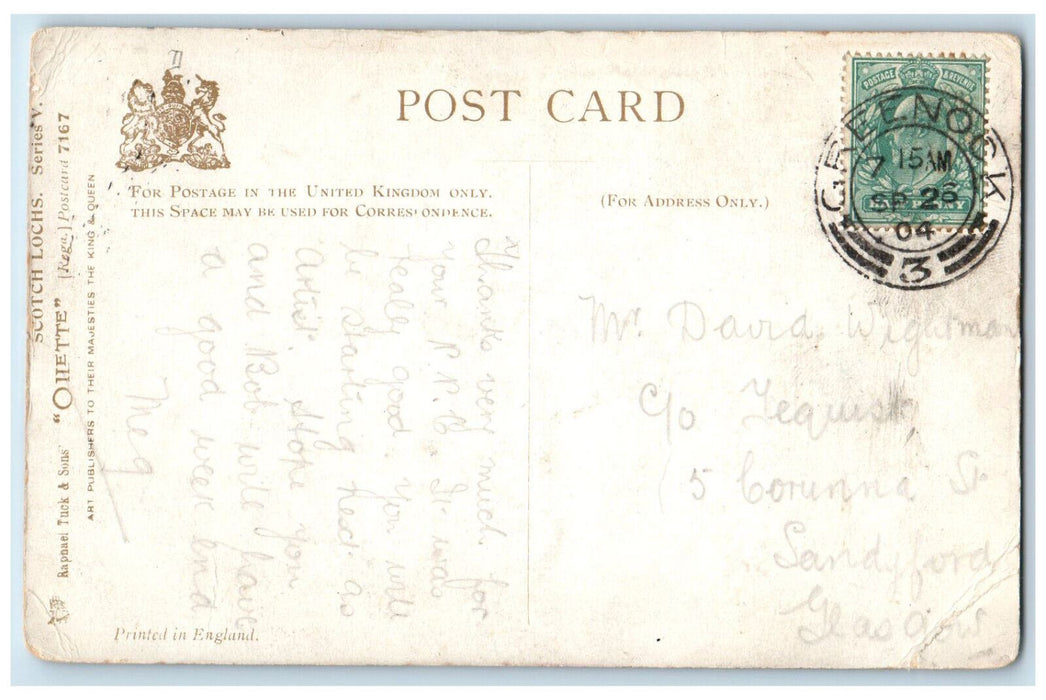 POST CARD
FOR POSTAGE IN THE UNITED KINGDOM ONLY.
THIS SPACE MAY BE USED FOR CORRESPONDENCE.
(FOR ADDRESS ONLY.)
POSTAGE & REVENUE
GREENOCK
7 15AM
SP 28
04
3
Thanks very much for
your P.P.C. It was
really good. You will
be starting head as
artist. Hope you
and Bob will have
a good week end
Meg
Mr David Wightman
c/o Tequist
15 Corunna St
Sandyford
Glasgow
SCOTCH LOCHS. Series V.
Raphael Tuck & Sons' "OILETTE" [Regd.] Postcard 7167
ART PUBLISHERS TO THEIR MAJESTIES THE KING & QUEEN
Printed in England.